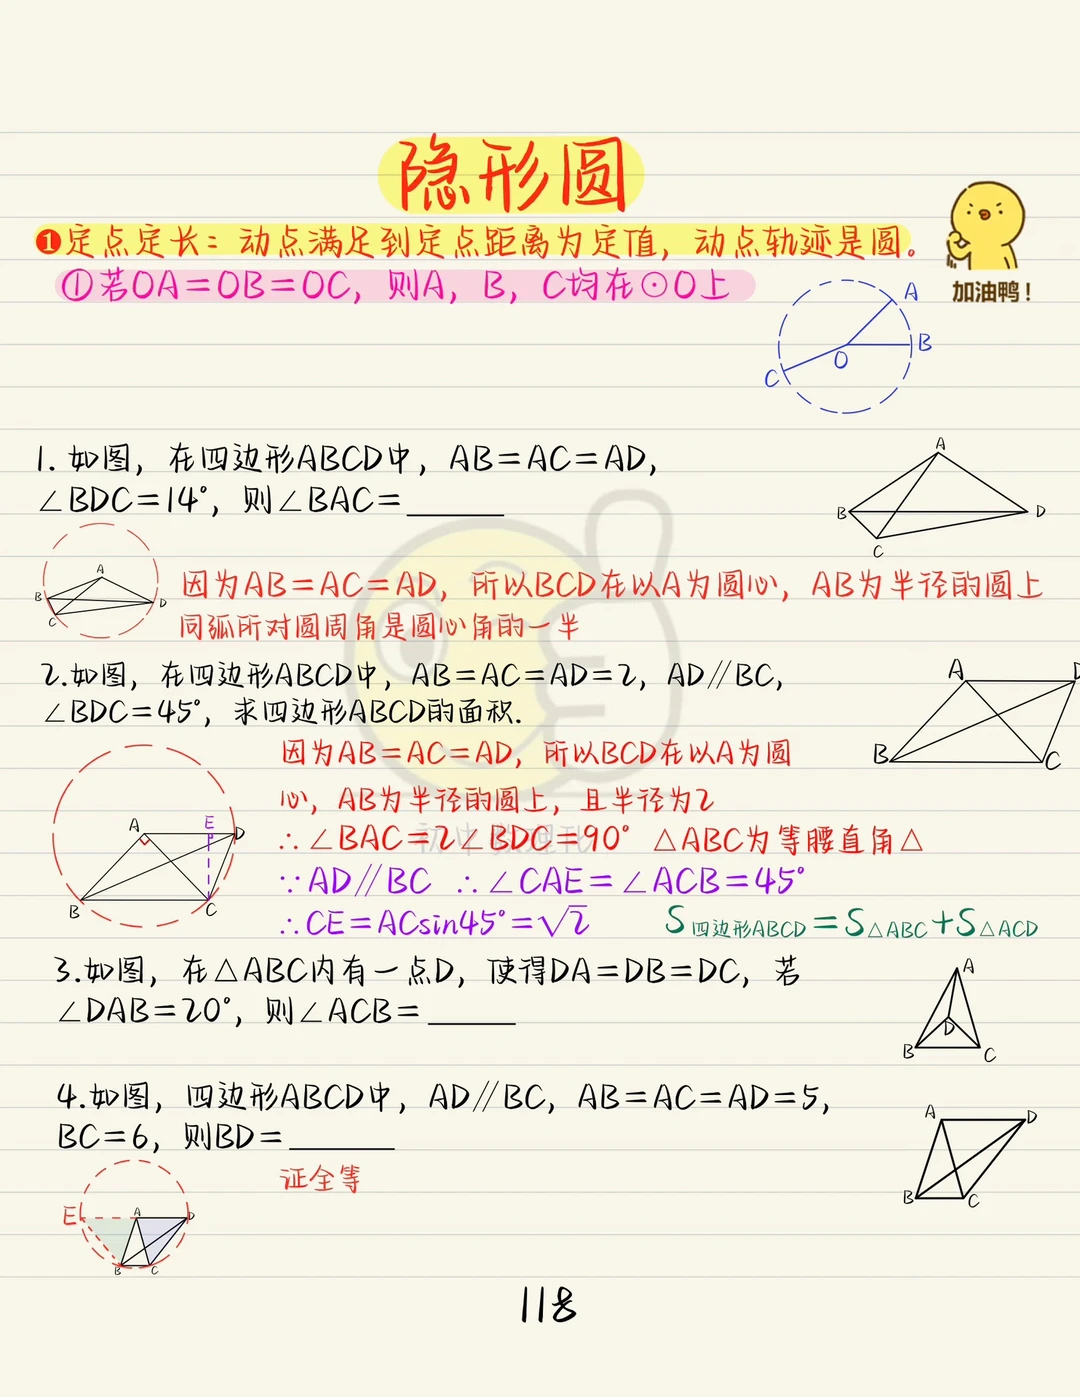 隐形圆
❶定点定长：动点满足到定点距离为定值，动点轨迹是圆。
①若OA=OB=OC，则A，B，C均在⊙O上
加油鸭！
A
B
O
C
1. 如图，在四边形ABCD中，AB=AC=AD，
∠BDC=14°，则∠BAC=______
A
B
D
C
A
B
D
C
因为AB=AC=AD，所以BCD在以A为圆心，AB为半径的圆上
同弧所对圆周角是圆心角的一半
2.如图，在四边形ABCD中，AB=AC=AD=2，AD∥BC，
∠BDC=45°，求四边形ABCD的面积.
A
D
B
C
因为AB=AC=AD，所以BCD在以A为圆
心，AB为半径的圆上，且半径为2
∴∠BAC=2∠BDC=90° △ABC为等腰直角△
∵AD∥BC ∴∠CAE=∠ACB=45°
∴CE=ACsin45°=√2 S四边形ABCD=S△ABC+S△ACD
A
E
D
B
C
初中数理化
3.如图，在△ABC内有一点D，使得DA=DB=DC，若
∠DAB=20°，则∠ACB=______
A
D
B
C
4.如图，四边形ABCD中，AD∥BC，AB=AC=AD=5，
BC=6，则BD=______
A
D
B
C
证全等
E
A
D
B
C
118